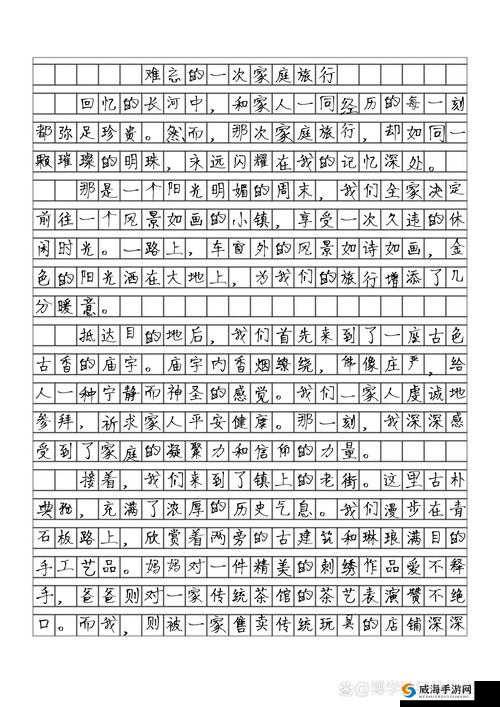 难忘的一次家庭旅行
回忆的长河中，和家人一同经历的每一刻
都弥足珍贵。然而，那次家庭旅行，却如同一
颗璀璨的明珠，永远闪耀在我的记忆深处。
那是一个阳光明媚的周末，我们全家决定
前往一个风景如画的小镇，享受一次久违的休
闲时光。一路上，车窗外的风景如诗如画，金
色的阳光洒在大地上，为我们的旅行增添了几
分暖意。
抵达目的地后，我们首先来到了一座古色
古香的庙宇。庙宇内香烟缭绕，佛像庄严，给
人一种宁静而神圣的感觉。我们一家人虔诚地
参拜，祈求家人平安健康。那一刻，我深深感
受到了家庭的凝聚力和信仰的力量。
接着，我们来到了镇上的老街。这里古朴
典雅，充满了浓厚的历史气息。我们漫步在青
石板路上，欣赏着两旁的古建筑和琳琅满目的
手工艺品。妈妈对一件精美的刺绣作品爱不释
手，爸爸则对一家传统茶馆的茶艺表演赞不绝
口。而我，则被一家售卖传统玩具的店铺深深
威海手游网